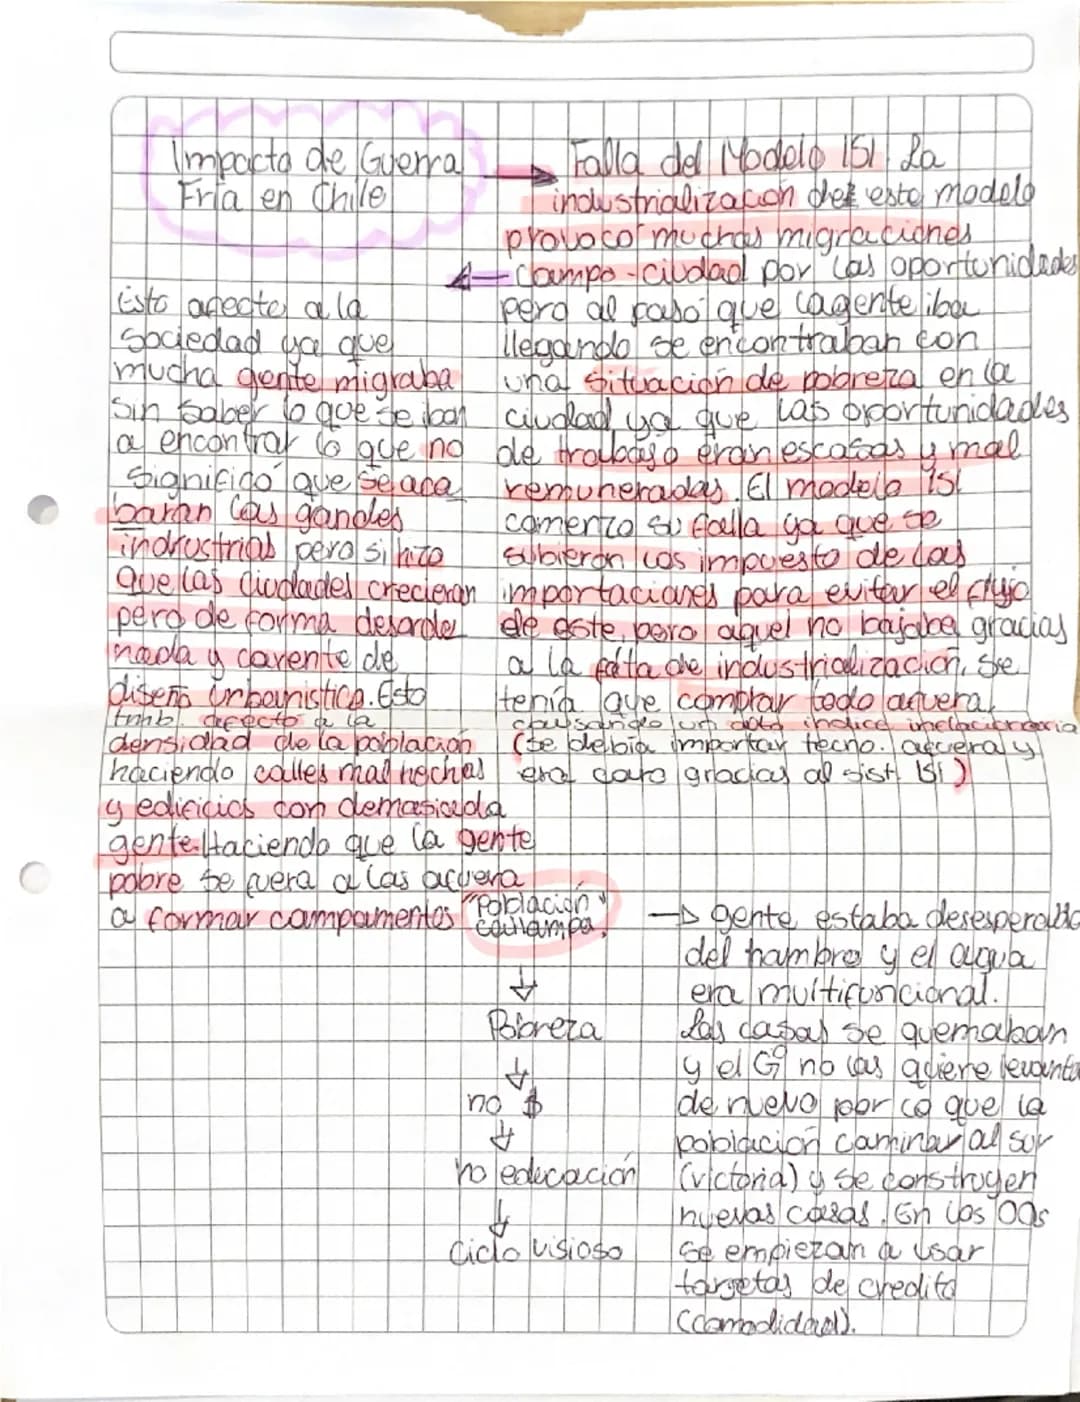 Impacto de Guerra
Fría en Chile
Falla del Modelo ISI. La
industrialización de este modelo
provocó muchas migraciones
Campo-ciudad por las oportunidades
pero al paso que la gente iba
llegando se encontraban con
una situación de pobreza en la
ciudad ya que las oportunidades
de trabajo eran escasas y mal
remuneradas. El modelo ISI
comenzo su falla ya que se
subieron los impuesto de las
importaciones para evitar el flujo
de este, pero aquel no bajaba gracias
a la falta de industrialización. Se
tenía que comprar todo afuera,
causando un alto indice inflacionario
(se debia importar tecno. afuera y
era caro gracias al sist ISI)
Esto afecto a la
sociedad ya que
mucha gente migraba
sin saber lo que se iban
a encontrar lo que no
significó que se aca
baran las gandes
indrustrias pero si hizo
que las ciudades crecieran
pero de forma desorde
nada y carente de
diseño urbanistica. Esto
tmb. afecto a la
densidad de la población
haciendo calles mal hechas
y edificios con demasiada
gente. Haciendo que la gente
pobre se fuera a las afuera
a formar campamentos "Población
callampa"
Pobreza
no $
no educación
Ciclo visioso
gente estaba desesperada
del hambre y el agua
era multifuncional.
Las casas se quemaban
y el Gº no las quiere levanta
de nuevo por lo que la
población caminar al sur
(victoria) y se construyen
nuevas casas. En los 00s
se empiezan a usar
targetas de credito
(comodidad).